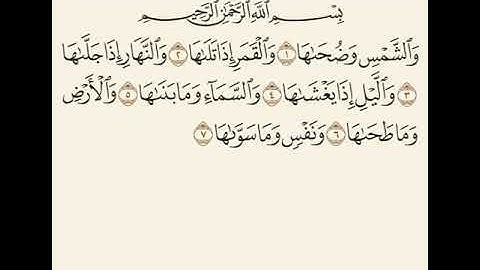 بِسْمِ ٱللَّهِ ٱلرَّحْمَٰنِ ٱلرَّحِيمِ
وَٱلشَّمْسِ وَضُحَىٰهَا ١ وَٱلْقَمَرِ إِذَا تَلَىٰهَا ٢ وَٱلنَّهَارِ إِذَا جَلَّىٰهَا
٣ وَٱلَّيْلِ إِذَا يَغْشَىٰهَا ٤ وَٱلسَّمَآءِ وَمَا بَنَىٰهَا ٥ وَٱلْأَرْضِ
وَمَا طَحَىٰهَا ٦ وَنَفْسٍ وَمَا سَوَّىٰهَا ٧